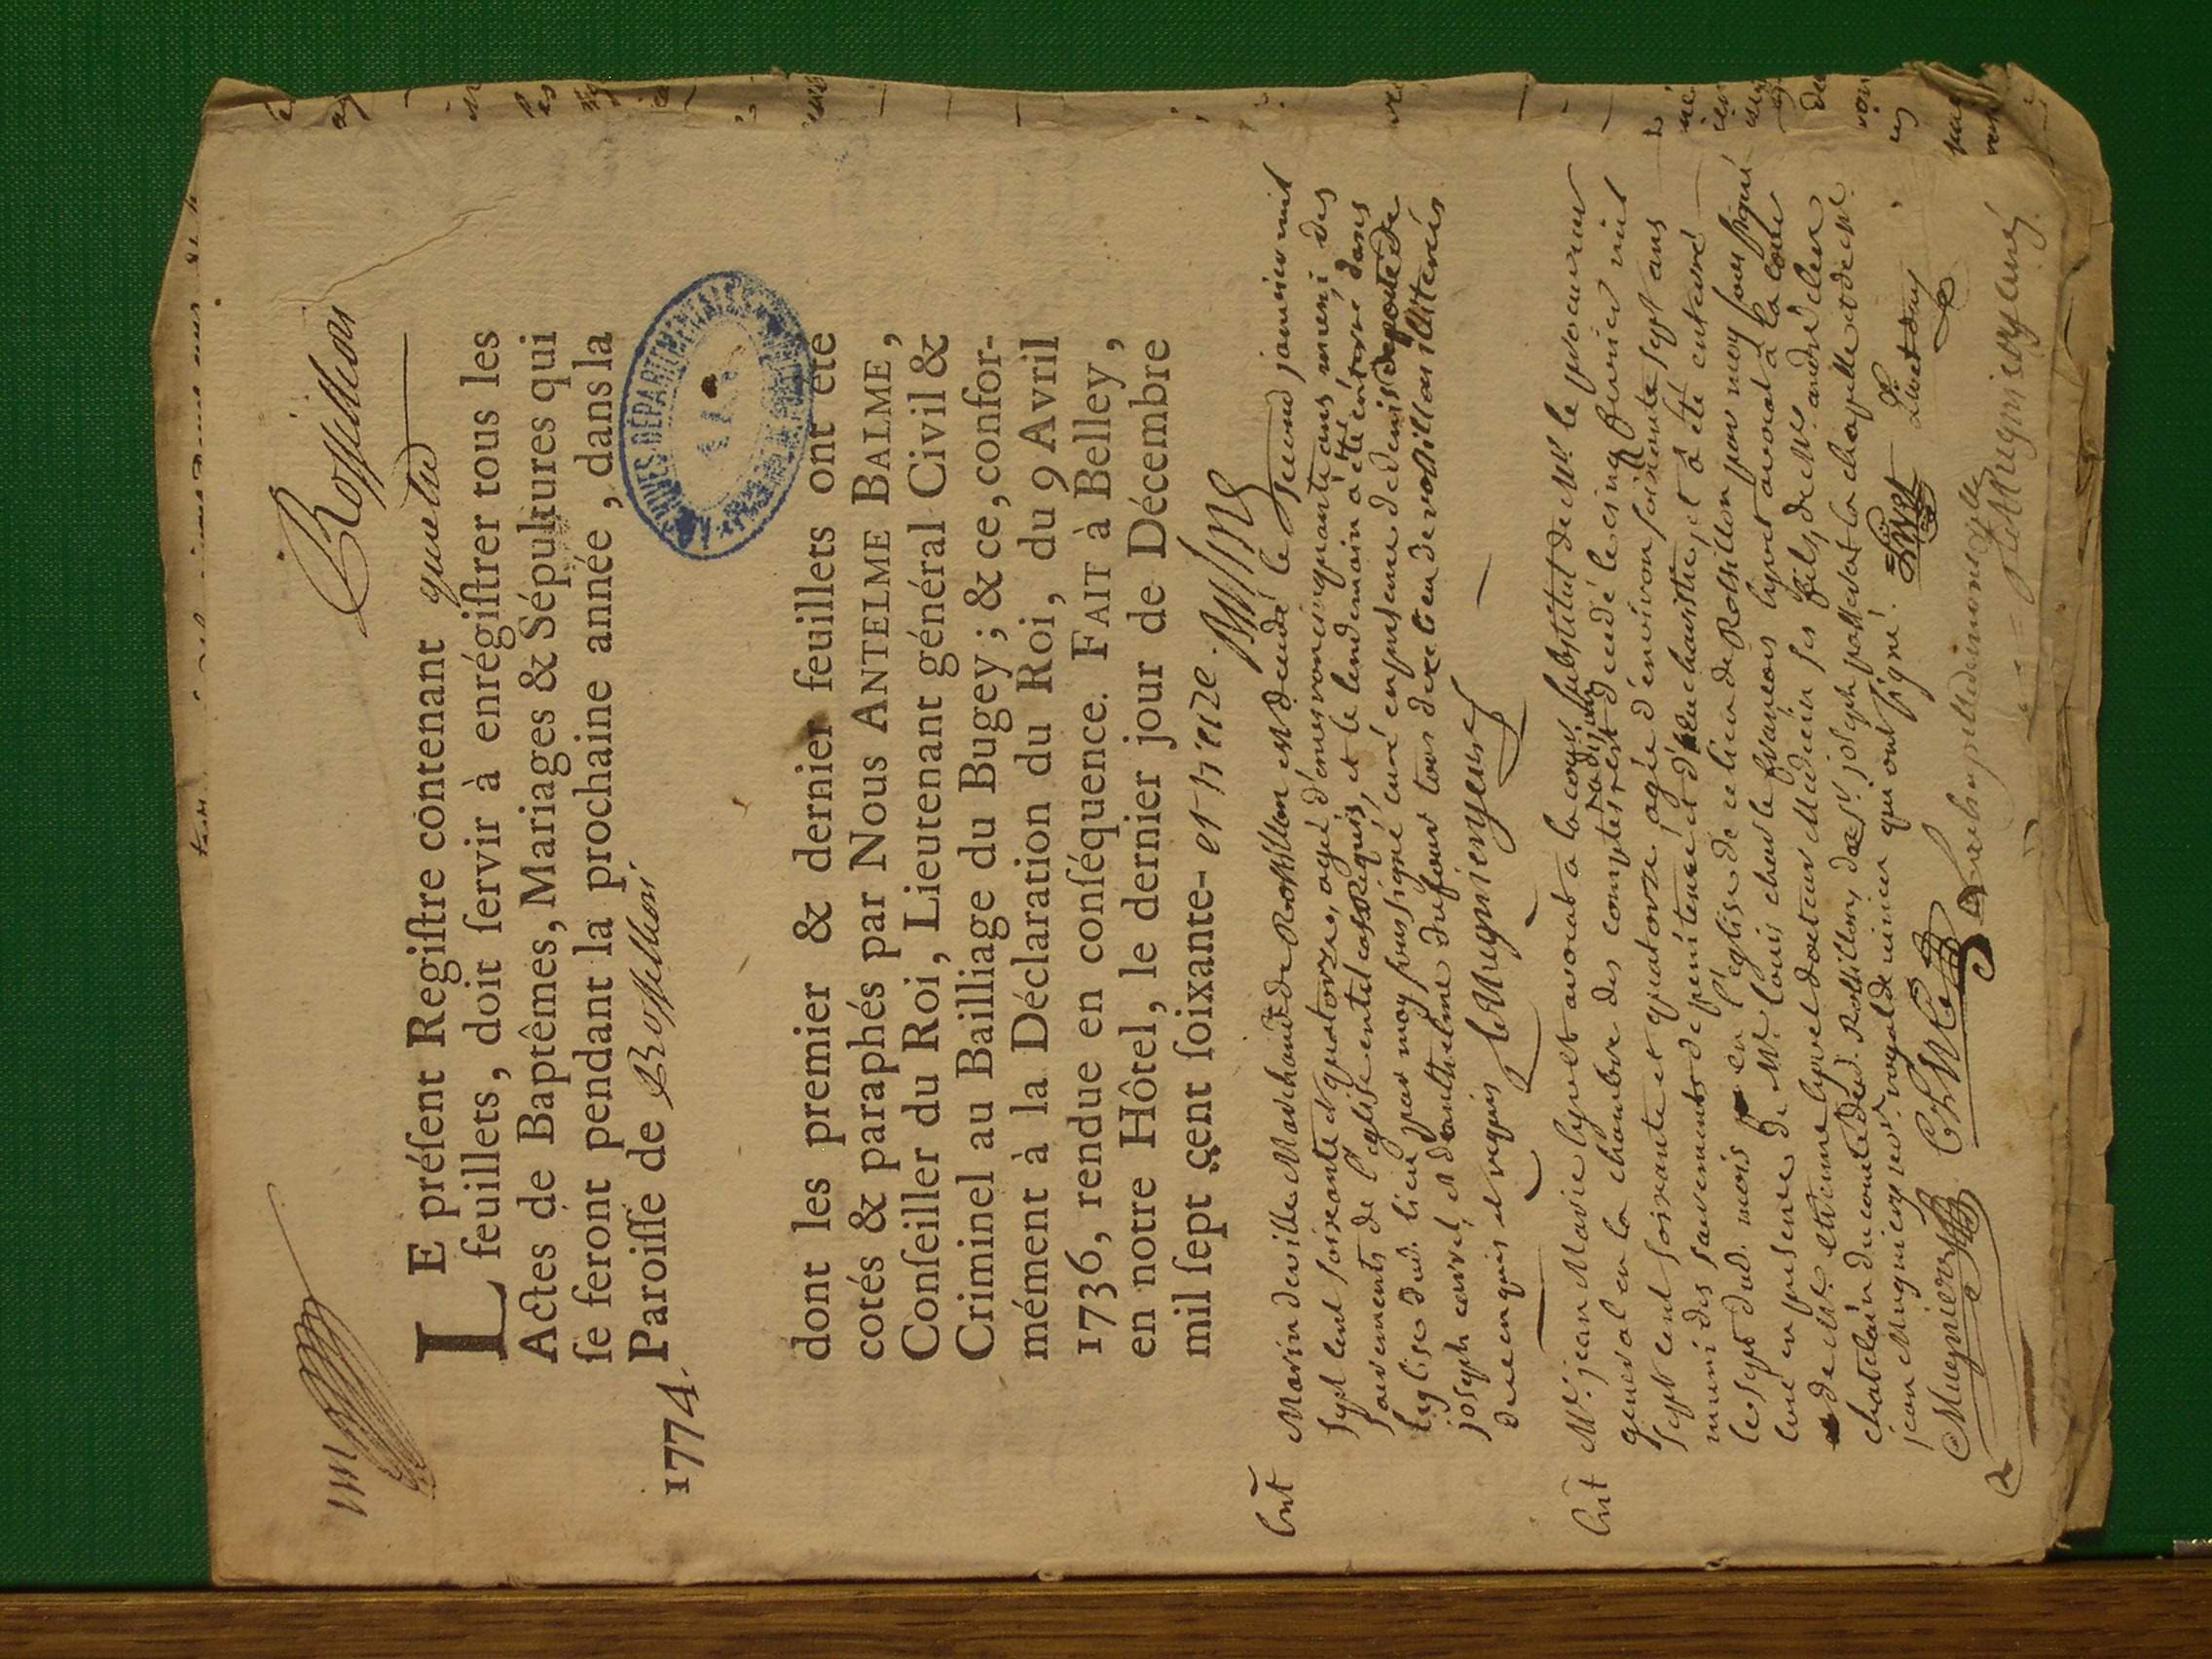 Rossillon
LE préſent Regiſtre contenant quatre
feuillets, doit ſervir à enrégiſtrer tous les
Actes de Baptêmes, Mariages & Sépultures qui
ſe feront pendant la prochaine année, dans la
Paroiſſe de Rossillon
1774.
ARCHIVES DÉPARTEMENTALES
dont les premier & dernier feuillets ont été
cotés & paraphés par Nous ANTELME BALME,
Conſeiller du Roi, Lieutenant général Civil &
Criminel au Bailliage du Bugey; & ce, confor-
mément à la Déclaration du Roi, du 9 Avril
1736, rendue en conſéquence. FAIT à Belley,
en notre Hôtel, le dernier jour de Décembre
mil ſept cent ſoixante- et treize. Balme
Ent Marin deville Marchand de Rossillon est decedé le second janvier mil
sept cent soixante et quatorze, agé d'environ cinquante ans muni des
sacrements de l'eglise en tel cas Requis, et le lendemain a été enterré dans
l'eglise dud. lieu par moy soussigné curé en presence de denis de
joseph carrel, et d'anthelme dufour tous dud. lieu de rossillon illiterés
de ce enquis et requis Le Mugnier curé
Ent Mr. jean Marie lyvet avocat a la cour, substitut de Mr. le procureur
general en la chambre des comptes est decedé le cinq fevrier mil
sept cent soixante et quatorze agé d'environ soixante sept ans
muni des sacrements de penitence et d'eucharistie, et a été enterré
le sept dud. mois en l'eglise de ce lieu de Rossillon par moy soussigné
curé en presence de Mr. louis charle françois lyvet avocat a la cour
de Mr. etienne lyvet docteur Medecin ses fils, de Mr. andré
chatelain du comté dud. Rossillon, de sr. joseph la chapelle et de Mr.
jean Mugnier no.re royal de virieu qui ont signé. Livet Livet
Mugnier
Le Mugnier curé